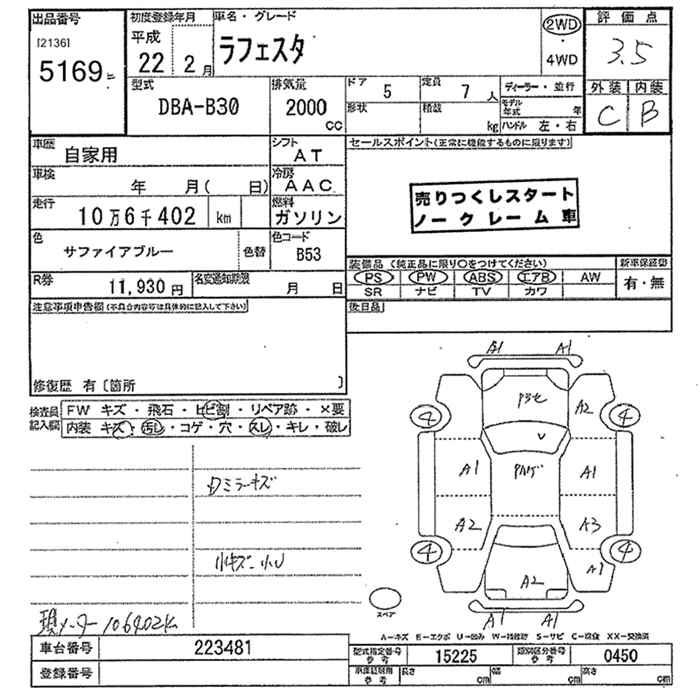 出品番号
[2136]
5169
初度登録年月
平成
22 2月
車名・グレード
ラフェスタ
2WD
・
4WD
評価点
3.5
外装 内装
C B
型式
DBA-B30
排気量
2000
CC
ドア 5
定員 7 人
形状
積載 kg
ディーラー・並行
モデル年式 年
ハンドル 左・右
車歴
自家用
シフト
AT
車検
年 月( 日)
冷房
AAC
走行
10万6千402 km
燃料
ガソリン
色
サファイアブルー
色替
色コード
B53
R券
11,930円
名変通知期限
月 日
セールスポイント(正常に機能するものに限ります)
売りつくしスタート
ノークレーム車
装備品 (純正品に限り○をつけてください)
新車保証書
PS PW ABS エアB AW
有・無
SR ナビ TV カワ
後日品
注意事項申告欄(不具合内容等は具体的に記入して下さい)
修復歴 有〔箇所 〕
検査員
記入欄
FW キズ・飛石・ヒビ割・リペア跡・×要
内装 キズ・汚レ・コゲ・穴・スレ・キレ・破レ
ロミラーキズ
小キズ・小U
現メーター106402K
A1 A1
4 P3セ A2 4
A1 Pハゲ A1
A2 A3
4 A2 A1 4
A1 A1
スペア
A―キズ E―エクボ U―凹み W―補修跡 S―サビ C―腐食 XX―交換済
車台番号
223481
型式指定番号
参考
15225
類別区分番号
参考
0450
登録番号
車庫証明用
参考
長さ cm
幅 cm
高さ cm